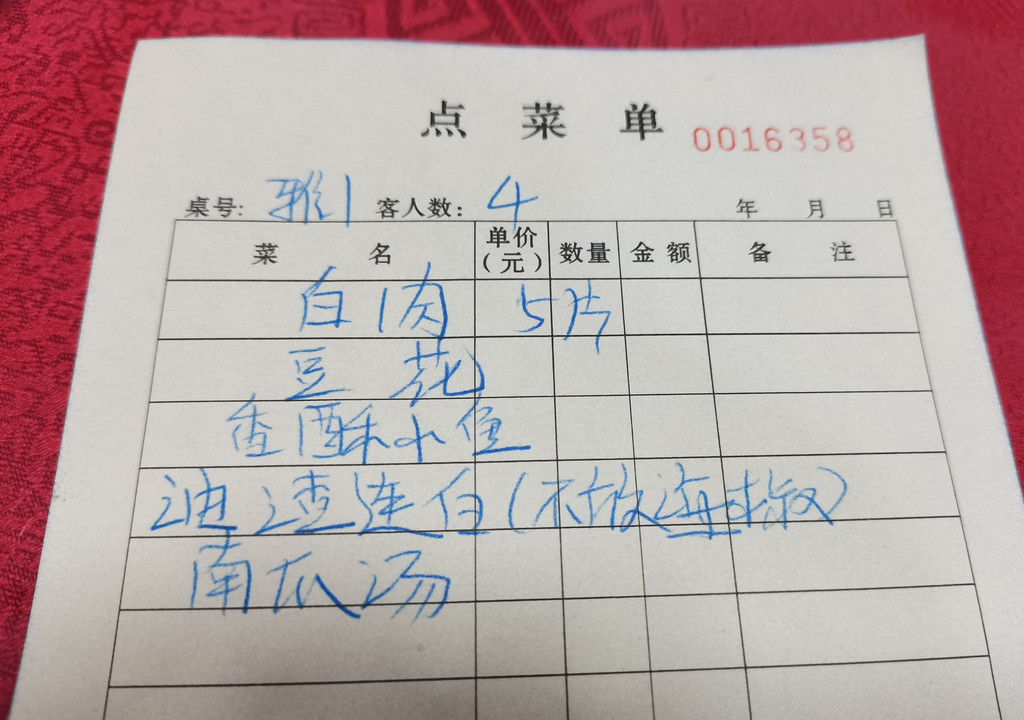 点菜单 0016358
桌号: 雅1 客人数: 4 年 月 日
菜名 单价(元) 数量 金额 备注
白肉 5片
豆花
香酥小鱼
油渣连白(不放海椒)
南瓜汤